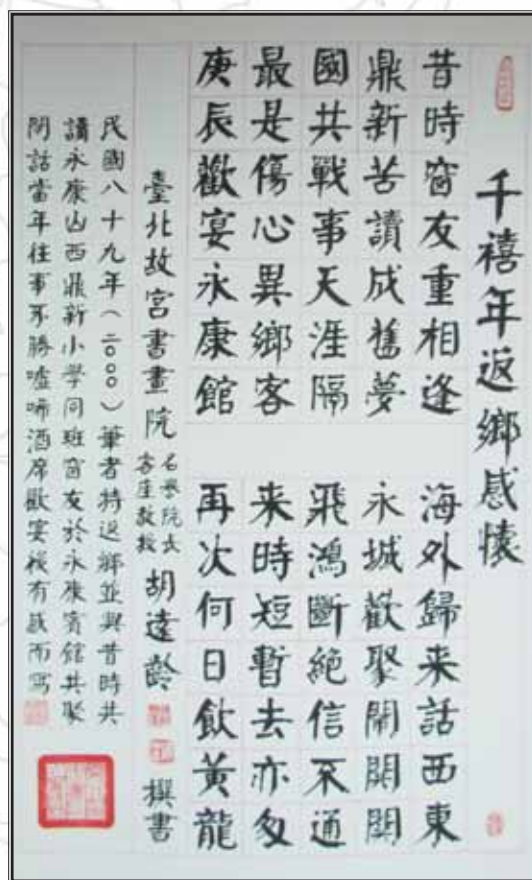 千禧年返鄉感懷
昔時窗友重相逢 海外歸来話西東
鼎新苦讀成舊夢 永城歡聚鬧
國共戰事天涯隔 飛鴻斷絕信不通
最是傷心異鄉客 来時短暫去亦匆
庚辰歡宴永康館 再次何日飲黃龍
臺北故宮書畫院 名譽院長 客座教授 胡達齡 撰書
民國八十九年(二○○○)筆者特返鄉並與昔時共
讀永康山西鼎新小學同班窗友於永康賓館共聚
閒話當年往事不勝噓唏酒席歡宴後有感而寫